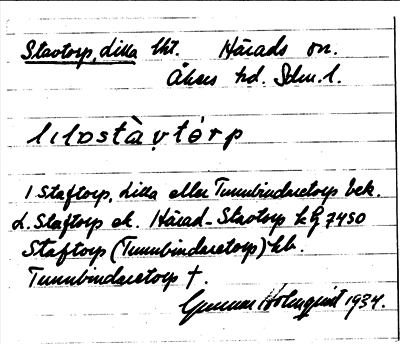 Stavtorp, Lilla lht. Härads sn.
Åkers hd. Sdm. l.
lilostàvtórp
1 Staftorp, Lilla eller Tunnbindaretorp bek.
L. Staftorp ek. Härad-Stavtorp 7450
Staftorp (Tunnbindaretorp) kb.
Tunnbindaretorp †.
Gunnar Holmquist 1934.